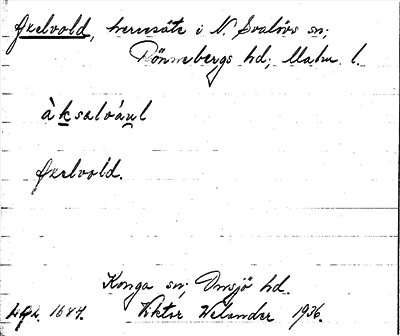 Axelvold, herresäte i N. Svalövs sn;
Rönnebergs hd; Malm. l.
àksalvául
Axelvold.
Konga sn; Onsjö hd.
1684. Viktor Welander 1936.